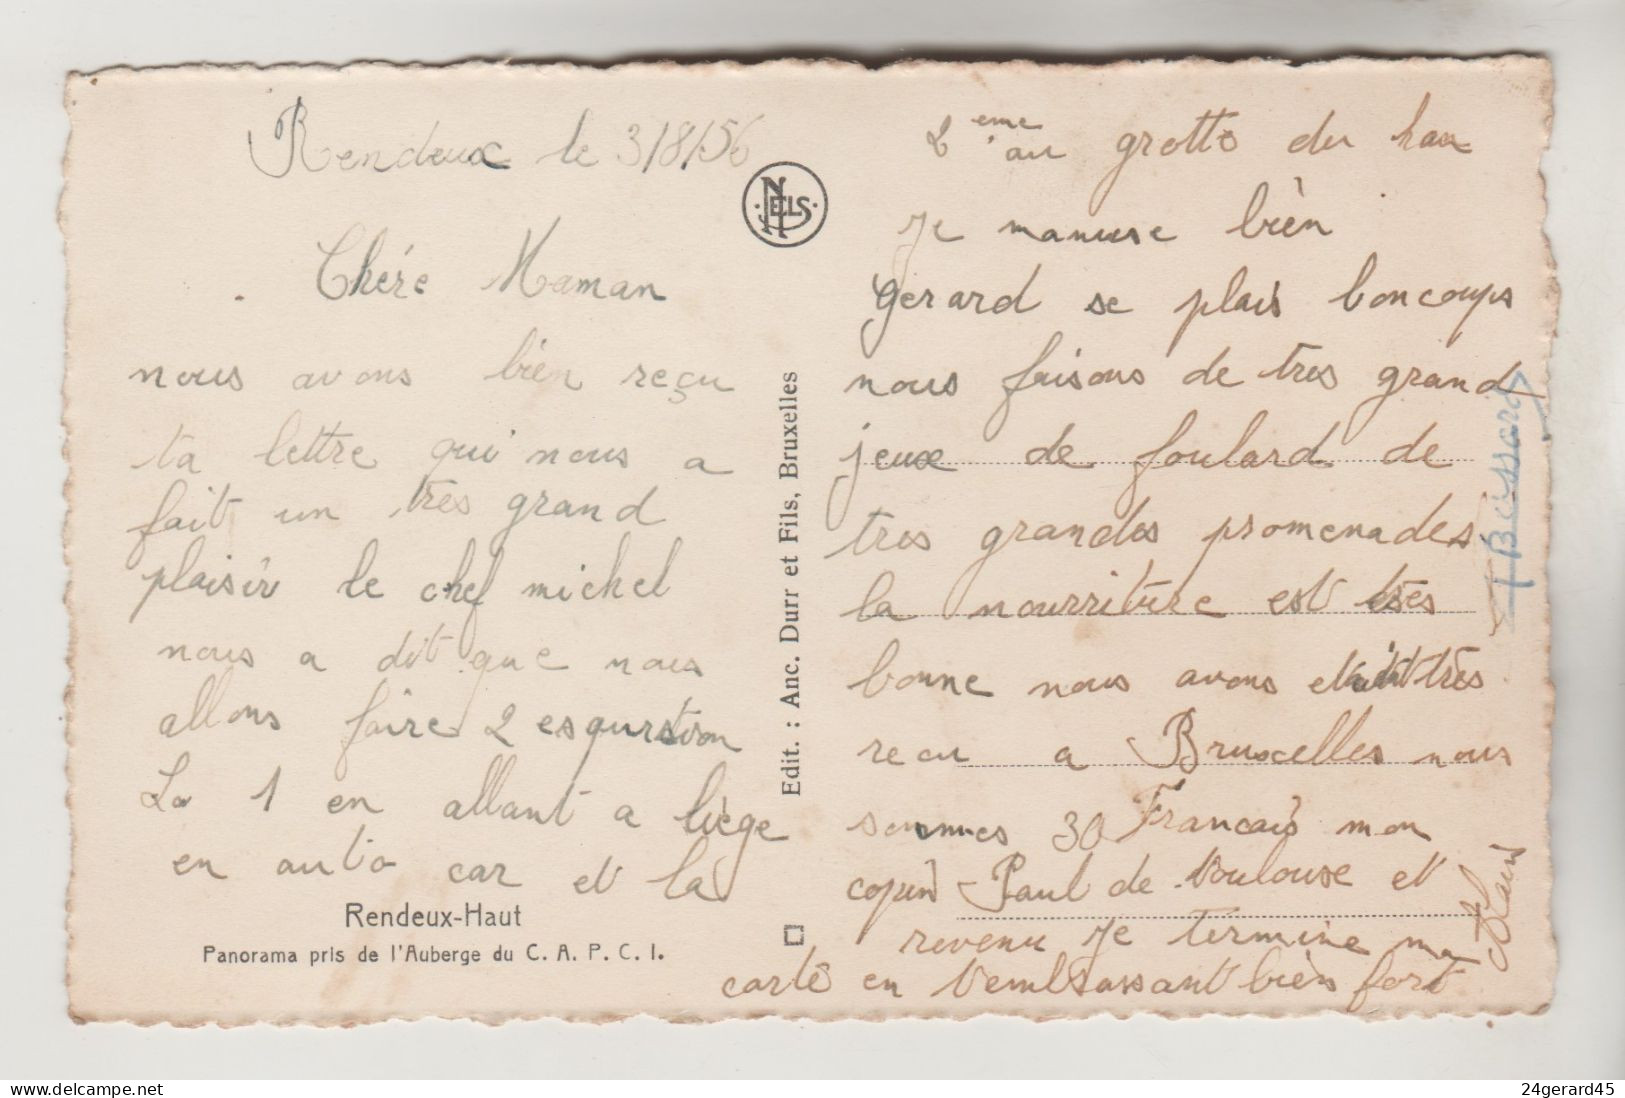 Rendeux le 3/8/56
Chére Maman
nous avons bien reçu
ta lettre qui nous a
fait un tres grand
plaisir le chef michel
nous a dit que nous
allons faire 2 esqurstion
La 1 en allant a liège
en auto car et la
Rendeux-Haut
Panorama pris de l'Auberge du C. A. P. C. I.
NELS
Edit. : Anc. Durr et Fils, Bruxelles
2 eme au grotte du han
Je mamuse bièn
Gerard se plais boncoups
nous faisons de tres grand
jeux de foulard de
tres grandes promenades
la nourriture est tres
bonne nous avons très
recu a Bruxcelles nous
sommes 30 Francais mon
copin Paul de Toulouse et
revenu Je termine ma
carte en t'embrassant bièn fort
Alain
Bussard
www.delcampe.net
24gerard45